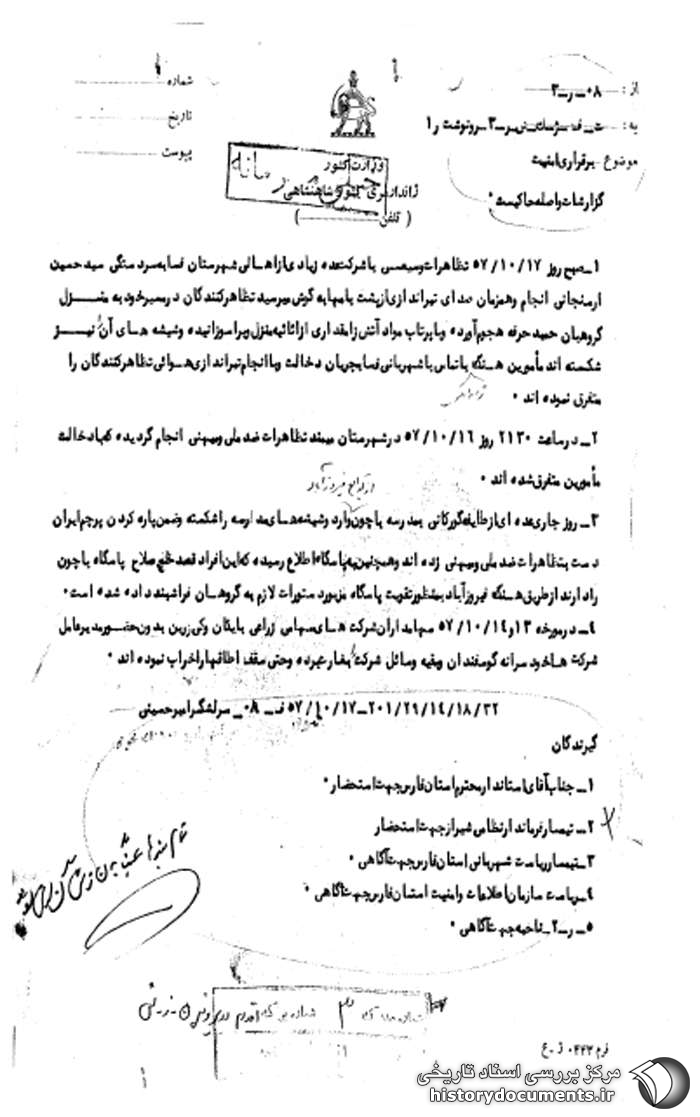 از: ۰۸-ر-۲
شماره
به: ت-ف-ژساک ش-ر-۳-رونوشت ر۱
تاریخ
موضوع برقراری امنیت
پیوست
گزارشات واصله حاکیست:
وزارت کشور
ژاندارمری کشور شاهنشاهی
خیلی محرمانه
( تلفن )
۱- صبح روز ۵۷/۱۰/۱۷ تظاهرات وسیعی با شرکت عده زیادی از اهالی شهرستان فسا به سردستگی سید حسین
ارسنجانی انجام و همزمان صدای تیراندازی از پشت بامها به گوش میرسید تظاهرکنندگان در مسیر خود به منزل
گروهبان حمید حرفه هجوم آورده و با پرتاب مواد آتش زا مقداری از اثاثیه منزل ویرا سوزانیده و شیشه های آن نیز
شکسته اند مأمورین هنگ با تماس با شهربانی فسا بجریان دخالت و با انجام تیراندازی هوائی تظاهرکنندگان را
متفرق نموده اند .
۲- در ساعت ۲۱۳۰ روز ۵۷/۱۰/۱۶ در شهرستان میمند تظاهرات ضد ملی و میهنی انجام گردیده که با دخالت
مأمورین متفرق شده اند .
از توابع فیروزآباد
۳- روز جاری عده ای از طایفه گورکانی بمدرسه باچون وارد و شیشه های مدارسه را شکسته و ضمن پاره کردن پرچم ایران
دست بتظاهرات ضد ملی و میهنی زده اند و همچنین به پاسگاه اطلاع رسیده که این افراد قصد خلع سلاح پاسگاه باچون
را دارند از طریق هنگ فیروزآباد بمنظور تقویت پاسگاه مزبور دستورات لازم به گروهان فراشبند داده شده است .
۴- در مورخه ۱۳ و ۵۷/۱۰/۱۴ سهامداران شرکت های سهامی زراعی بایگان وکی زرین بدون حضور مدیرعامل
شرکت ها خود سرانه گوسفندان و بقیه وسائل شرکت را بغارت برده و حتی سقف اطاقها را خراب نموده اند .
۲۰۱/۲۹/۱۴/۱۸/۳۲-۵۷/۱۰/۱۷ ف-۰۸- سرلشگر امیرحسینی
گیرندگان
۱- جناب آقای استاندار محترم استان فارس جهت استحضار .
۲- تیمسار فرماندار نظامی شیراز جهت استحضار
۳- تیمسار ریاست شهربانی استان فارس جهت آگاهی .
۴- ریاست سازمان اطلاعات و امنیت استان فارس جهت آگاهی .
۵- ر-۲- ناحیه جهت آگاهی .
فرم ۰۴۴۳ ق-ع
مرکز بررسی اسناد تاریخی
historydocuments.ir